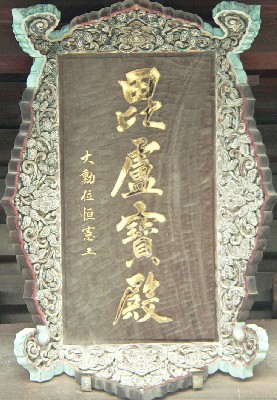 毘盧寶殿
大勲位恒憲王